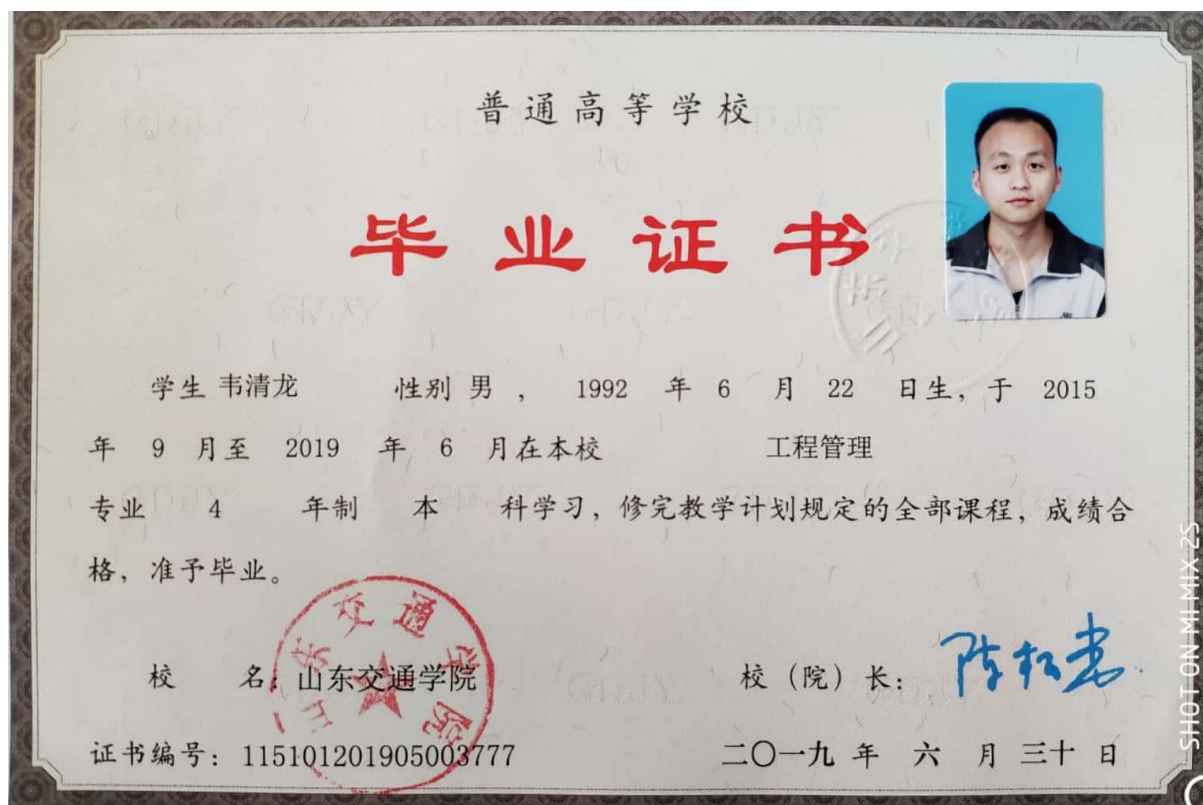 普通高等学校
毕业证书
学生 韦清龙 性别 男 ， 1992 年 6 月 22 日生，于 2015
年 9 月至 2019 年 6 月在本校 工程管理
专业 4 年制 本 科学习，修完教学计划规定的全部课程，成绩合
格，准予毕业。
山东交通学院
校 名：山东交通学院 校（院）长：
证书编号：115101201905003777 二〇一九 年 六 月 三十 日
SHOT ON MI MIX 2S